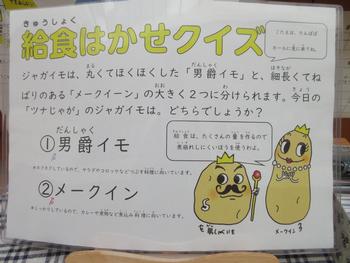 きゅうしょく
給食はかせクイズ
こたえは、らんぱば
ホールに見に来てね。
ジャガイモは、丸くてほくほくした「男爵イモ」と、細長くてね
ばりのある「メークイーン」の大きく２つに分けられます。今日の
「ツナじゃが」のジャガイモは、どちらでしょうか？
だんしゃく
①男爵イモ
給食は、たくさんの量を作るので
煮崩れしにくいほうを使うわよ。
②メークイン
男しゃくいも
メークイン